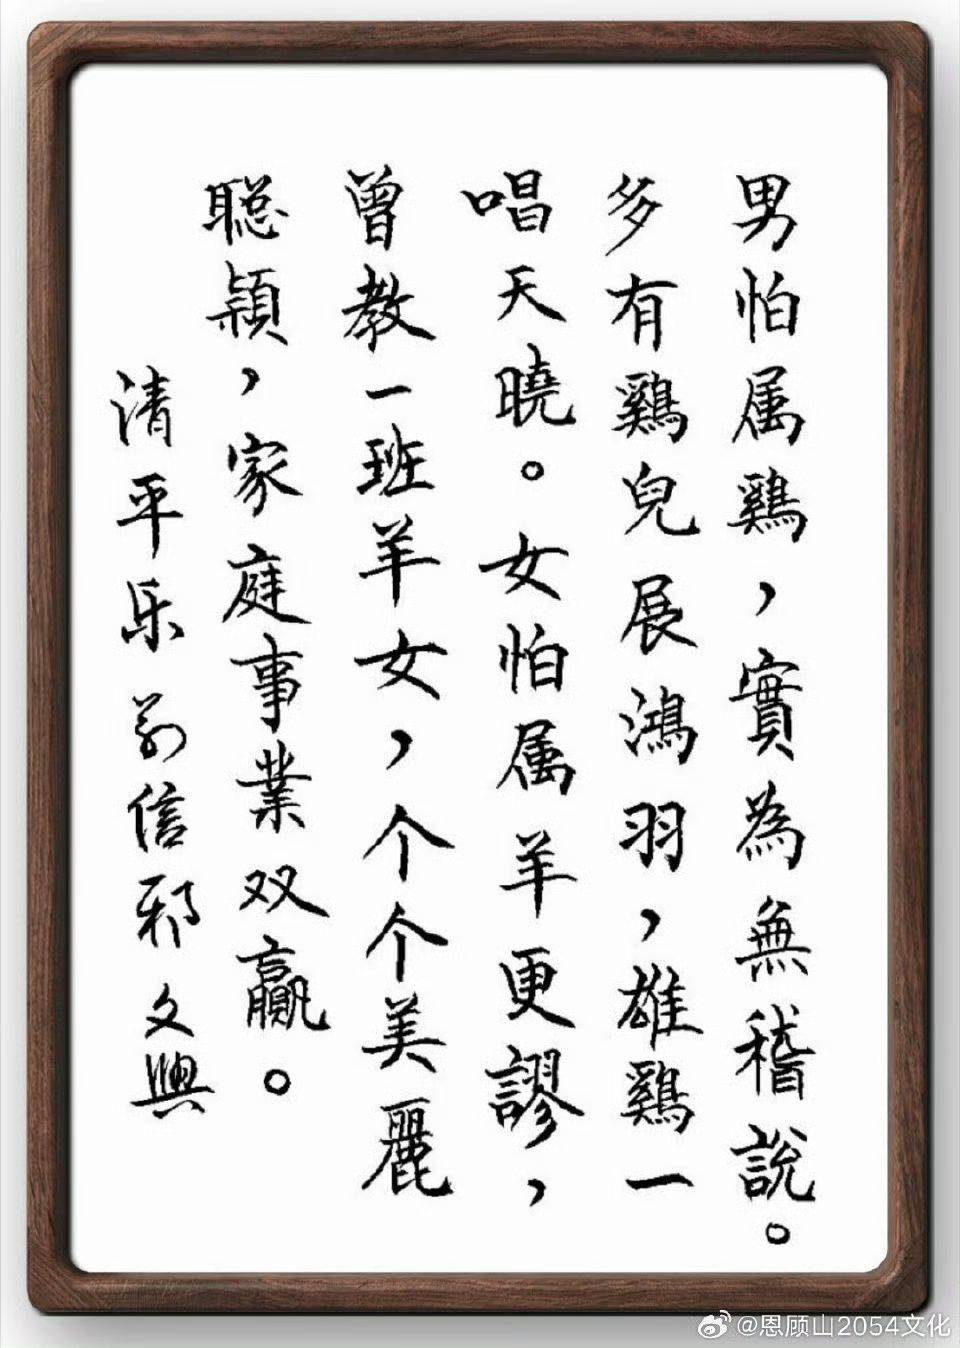 男怕属鷄，實為無稽說。
多有鷄兒展鴻羽，雄鷄一
唱天曉。女怕属羊更謬，
曾教一班羊女，个个美麗
聪穎，家庭事業双贏。
清平乐 信邪 文興
@恩顾山2054文化